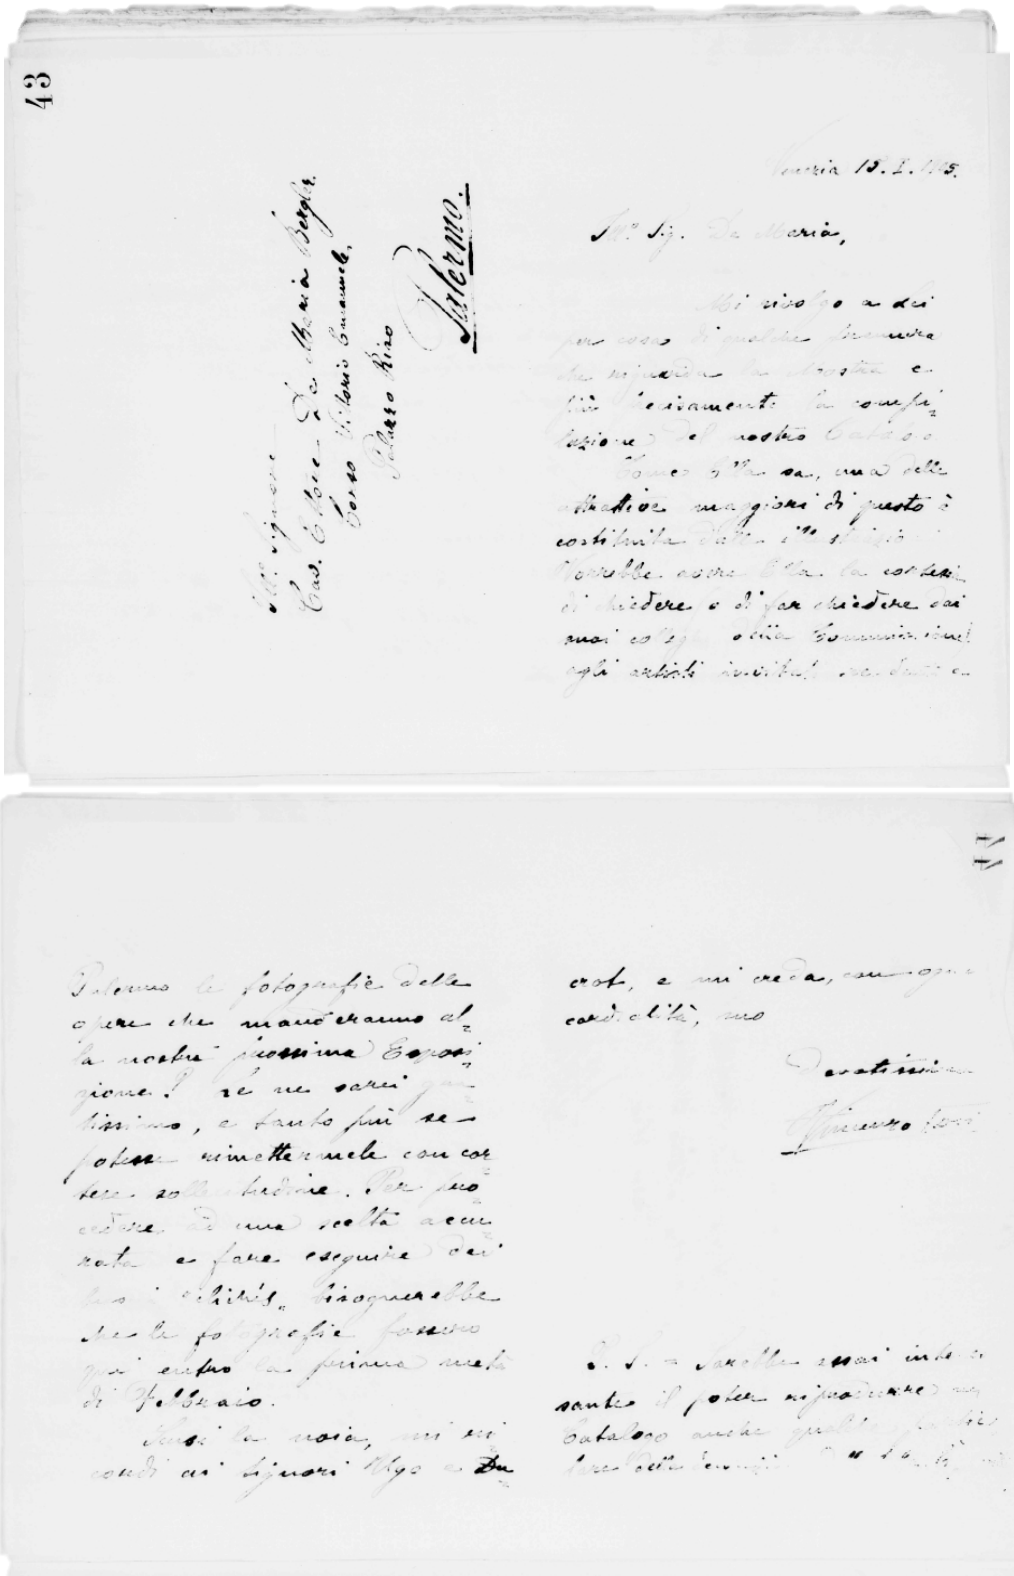 43
Ill.º Signore
Cav. Ettore De Maria Bergler.
Corso Vittorio Emanuele.
Palazzo Riso
Palermo.
Venezia 15. I. 1905.
Ill.º Sig. De Maria,
Mi rivolgo a Lei
per cosa di qualche premura
che riguarda la Mostra e
più precisamente la compi-
lazione del nostro Catalogo
Come Ella sa, una delle
attrattive maggiori di questo è
costituita dalle illustrazioni
Vorrebbe avere Ella la cortesia
di chiedere o di far chiedere dai
suoi colleghi della Commissione
agli artisti invitati
Palermo le fotografie delle
opere che manderanno al-
la nostra prossima Esposi-
zione? Le ne sarei gra-
tissimo, e tanto più se
potesse rimettermele con cor-
tese sollecitudine. Per pro-
cedere ad una scelta accu-
rata e fare eseguire dei
clichés, bisognerebbe
che le fotografie fossero
qui entro la prima metà
di Febbraio.
Scusi la noia, mi ri-
cordi ai signori Ugo e Du-
44
crot, e mi creda, con ogni
cordialità, suo
Devotissimo
P. S. = Sarebbe assai interes
sante il poter riprodurre nel
Catalogo anche qualche partico
lare della